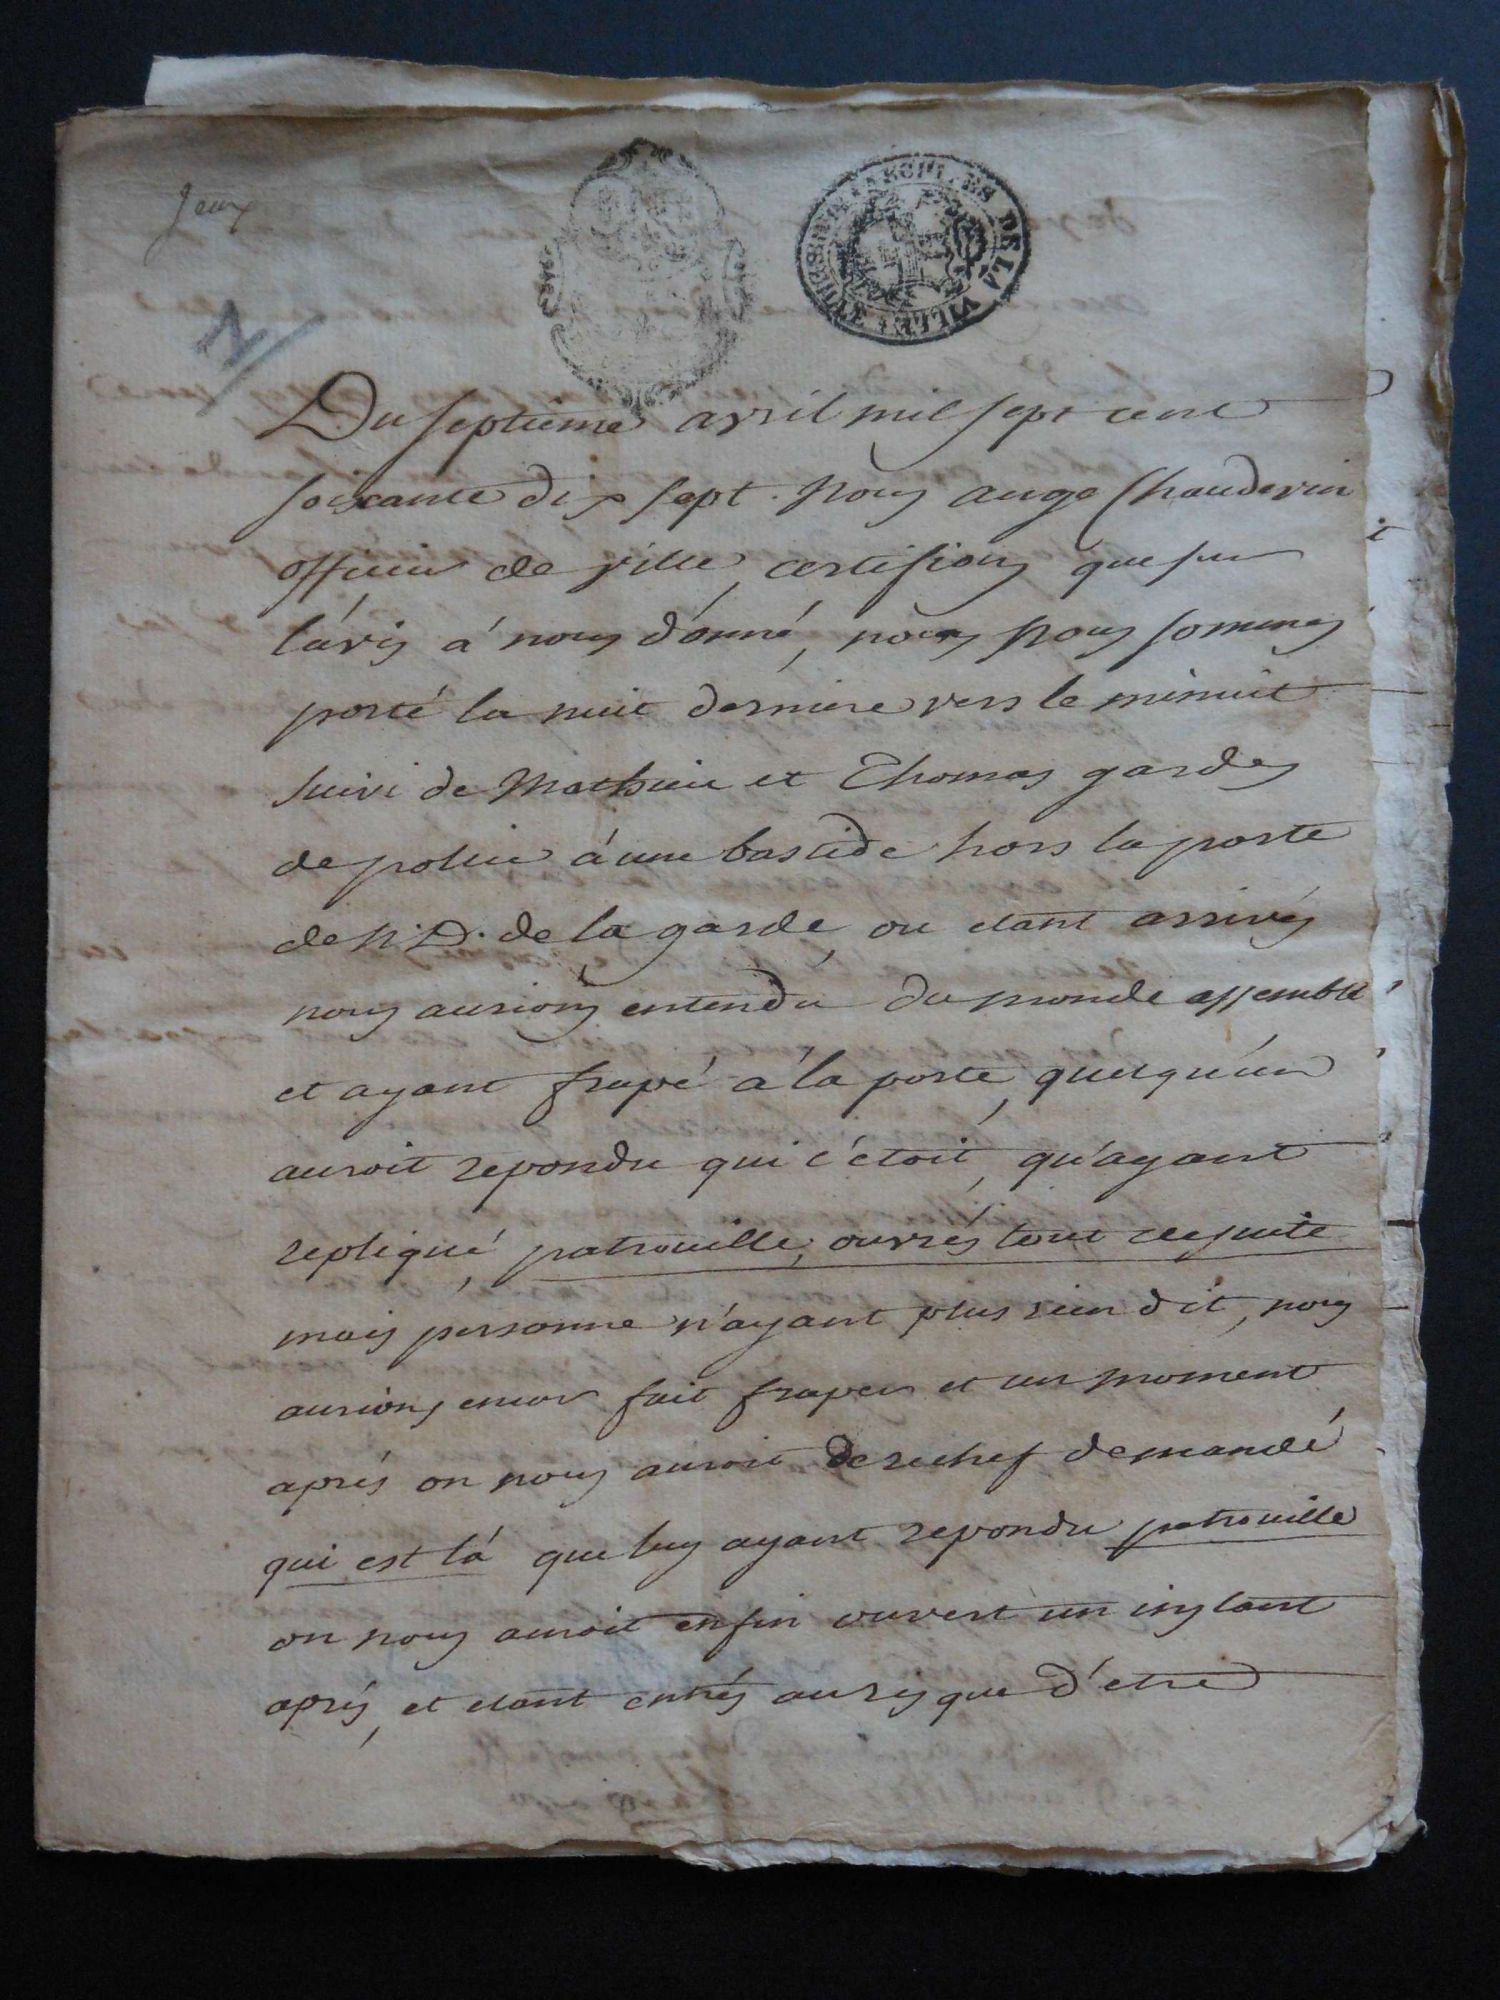 Jeux
1
ARCHIVES DE LA VILLE
Du septieme avril mil sept cent
soixante dix sept. Nous ange Chauderin
officier de ville, certifions que sur
l'avis à nous donné, nous Nous sommes
porté la nuit derniere vers le minuit
suivi de Mathieu et Thomas gardes
de police à une bastide hors la porte
de N.D. de la garde, ou etant arrivés
nous aurions entendu du monde assemblé
et ayant frapé à la porte, quelqu'un
auroit repondu qui c'étoit, qu'ayant
repliqué, patrouille, ouvrés tout de suite
mais personne n'ayant plus rien dit, nous
aurions encor fait fraper et un moment
aprés on nous auroit derechef demandé
qui est là que luy ayant repondu patrouille
on nous auroit enfin ouvert un instant
aprés, et etant entrés au risque d'etre